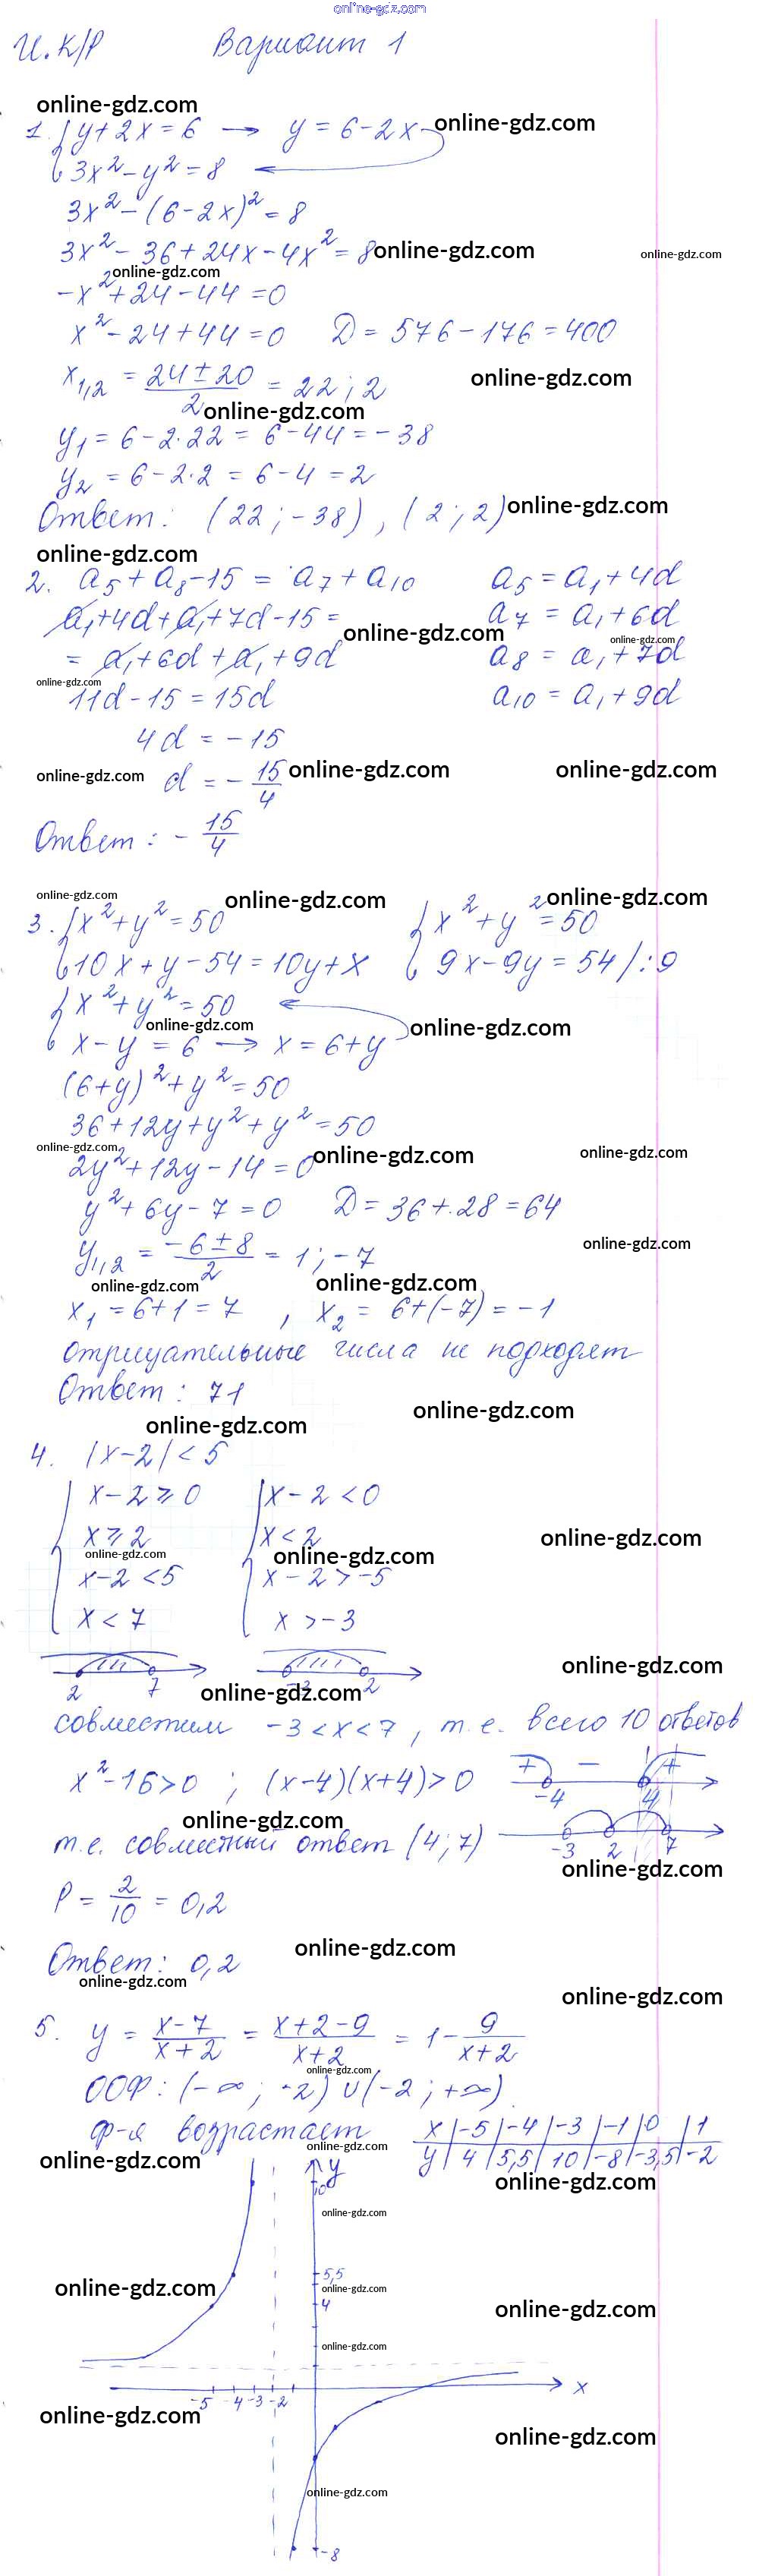 online-gdz.com
И.К/Р Вариант 1
online-gdz.com
1. { y+2x=6 → y=6-2x online-gdz.com
3x²-y²=8
3x²-(6-2x)²=8
3x²-36+24x-4x²=8 online-gdz.com online-gdz.com
online-gdz.com
-x²+24-44=0
x²-24+44=0 D=576-176=400
x₁,₂ = (24±20)/2 = 22; 2 online-gdz.com
online-gdz.com
y₁=6-2·22=6-44=-38
y₂=6-2·2=6-4=2
Ответ: (22;-38), (2;2) online-gdz.com
online-gdz.com
2. a₅+a₈-15=a₇+a₁₀ a₅=a₁+4d
a₁+4d+a₁+7d-15= a₇=a₁+6d
online-gdz.com online-gdz.com
=a₁+6d+a₁+9d a₈=a₁+7d
online-gdz.com
11d-15=15d a₁₀=a₁+9d
4d=-15
online-gdz.com d=-15/4 online-gdz.com online-gdz.com
Ответ: -15/4
online-gdz.com online-gdz.com online-gdz.com
3. { x²+y²=50 { x²+y²=50
10x+y-54=10y+x 9x-9y=54 /:9
{ x²+y²=50
online-gdz.com online-gdz.com
x-y=6 → x=6+y
(6+y)²+y²=50
36+12y+y²+y²=50
online-gdz.com online-gdz.com online-gdz.com
2y²+12y-14=0
y²+6y-7=0 D=36+28=64
y₁,₂ = (-6±8)/2 = 1; -7 online-gdz.com
online-gdz.com online-gdz.com
x₁=6+1=7, x₂=6+(-7)=-1
отрицательные числа не подходят
Ответ: 71
online-gdz.com online-gdz.com
4. |x-2|<5
{ x-2≥0 { x-2<0
x≥2 x<2 online-gdz.com
online-gdz.com online-gdz.com
x-2<5 x-2>-5
x<7 x>-3
online-gdz.com
2 7 -3 2
online-gdz.com
совместим -3<x<7, т.е. всего 10 ответов
x²-16>0; (x-4)(x+4)>0 + - +
-4 4
online-gdz.com
т.е. совместный ответ (4;7) -3 2 7
online-gdz.com
P=2/10=0,2
online-gdz.com
Ответ: 0,2
online-gdz.com online-gdz.com
5. y = (x-7)/(x+2) = (x+2-9)/(x+2) = 1-9/(x+2)
online-gdz.com
ООФ: (-∞; -2)∪(-2; +∞)
ф-я возрастает x | -5 | -4 | -3 | -1 | 0 | 1
online-gdz.com
y | 4 | 5,5 | 10 | -8 | -3,5 | -2
online-gdz.com y online-gdz.com
10
online-gdz.com
5,5
online-gdz.com online-gdz.com
4 online-gdz.com
online-gdz.com
x
-5 -4 -3 -2
online-gdz.com online-gdz.com
online-gdz.com
-8